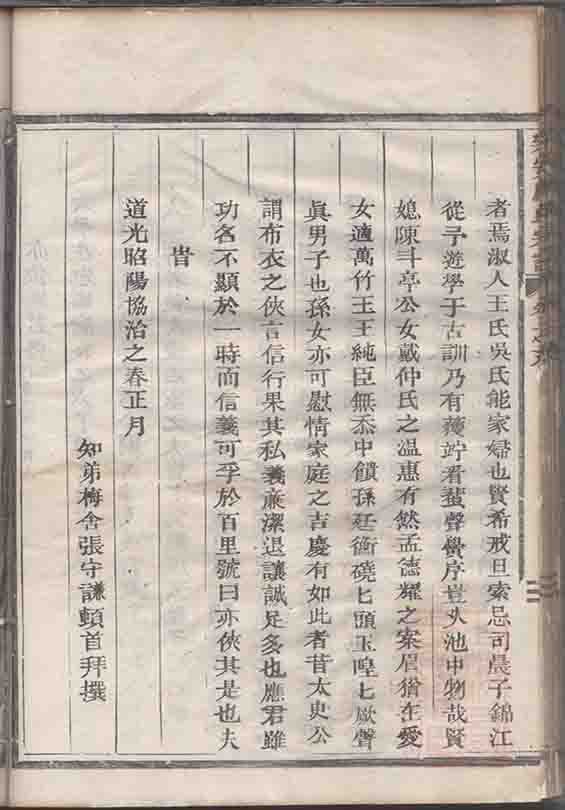 者焉淑人王氏吳氏能家婦也賢希戒旦索忌司晨子錦江
從予遊學于古訓乃有獲竚看蜚聲黌序豈久池中物哉賢
媳陳斗亭公女戴仲氏之温惠有然孟德耀之案眉猶在愛
女適萬竹王王純臣無忝中饋孫廷衡磽匕頭玉喤匕厥聲
眞男子也孫女亦可慰情家庭之吉慶有如此者昔太史公
謂布衣之俠言信行果其私義亷潔退讓誠足多也應君雖
功名不顯於一時而信義可孚於百里號曰亦俠其是也夫
旹
道光昭陽協洽之春正月
知弟梅舍張守謙頓首拜撰